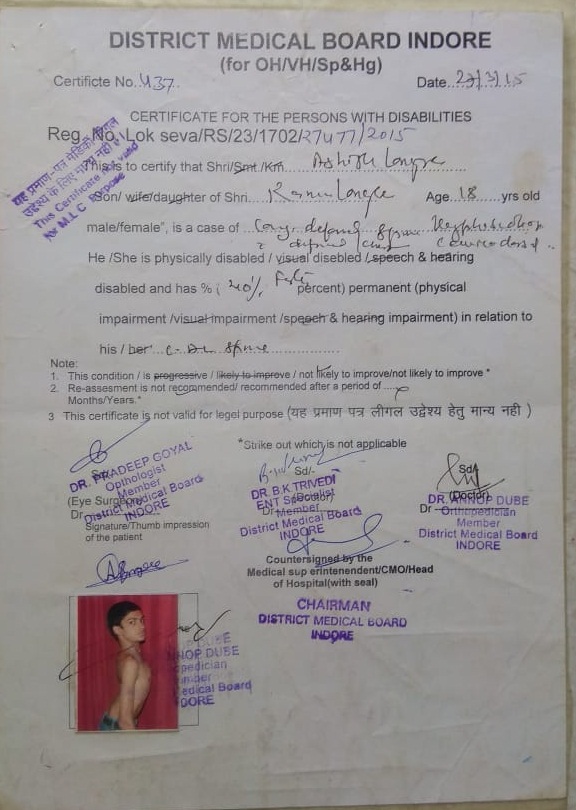 DISTRICT MEDICAL BOARD INDORE
(for OH/VH/Sp&Hg)
Certificte No. 437. Date 27/3/15
CERTIFICATE FOR THE PERSONS WITH DISABILITIES
Reg. No. Lok seva/RS/23/1702/27477/2015
यह प्रमाण-पत्र मेडिको लीगल
उद्देश्य के लिए मान्य नही है।
This Certificate not valid
for M.L.C. Purpose
This is to certify that Shri/Smt./Km. Ashish
Son/ wife/daughter of Shri. Age 18 yrs old
male/female", is a case of Cong. deformed spine
He /She is physically disabled / visual disebled /speech & hearing
disabled and has % ( 40% Forty percent) permanent (physical
impairment /visual impairment /speech & hearing impairment) in relation to
his / ber spine
Note:
1. This condition / is progressive / likely to improve / not likely to improve/not likely to improve *
2. Re-assesment is not recommended/ recommended after a period of
Months/Years.*
3 This certificate is not valid for legel purpose (यह प्रमाण पत्र लीगल उद्देश्य हेतु मान्य नही )
*Strike out which is not applicable
Sd/-
(Eye Surgeon)
Dr
DR. PRADEEP GOYAL
Opthologist
Member
District Medical Board
INDORE
Signature/Thumb impression
of the patient
Sd/-
DR. B.K TRIVEDI
ENT Specialist
Member
District Medical Board
INDORE
Sd/
(Doctor)
Dr
DR. ANNOP DUBE
Orthopedician
Member
District Medical Board
INDORE
Countersigned by the
Medical sup erintenendent/CMO/Head
of Hospital(with seal)
CHAIRMAN
DISTRICT MEDICAL BOARD
INDORE
NNOP DUBE
opedician
mber
edical Board
DORE